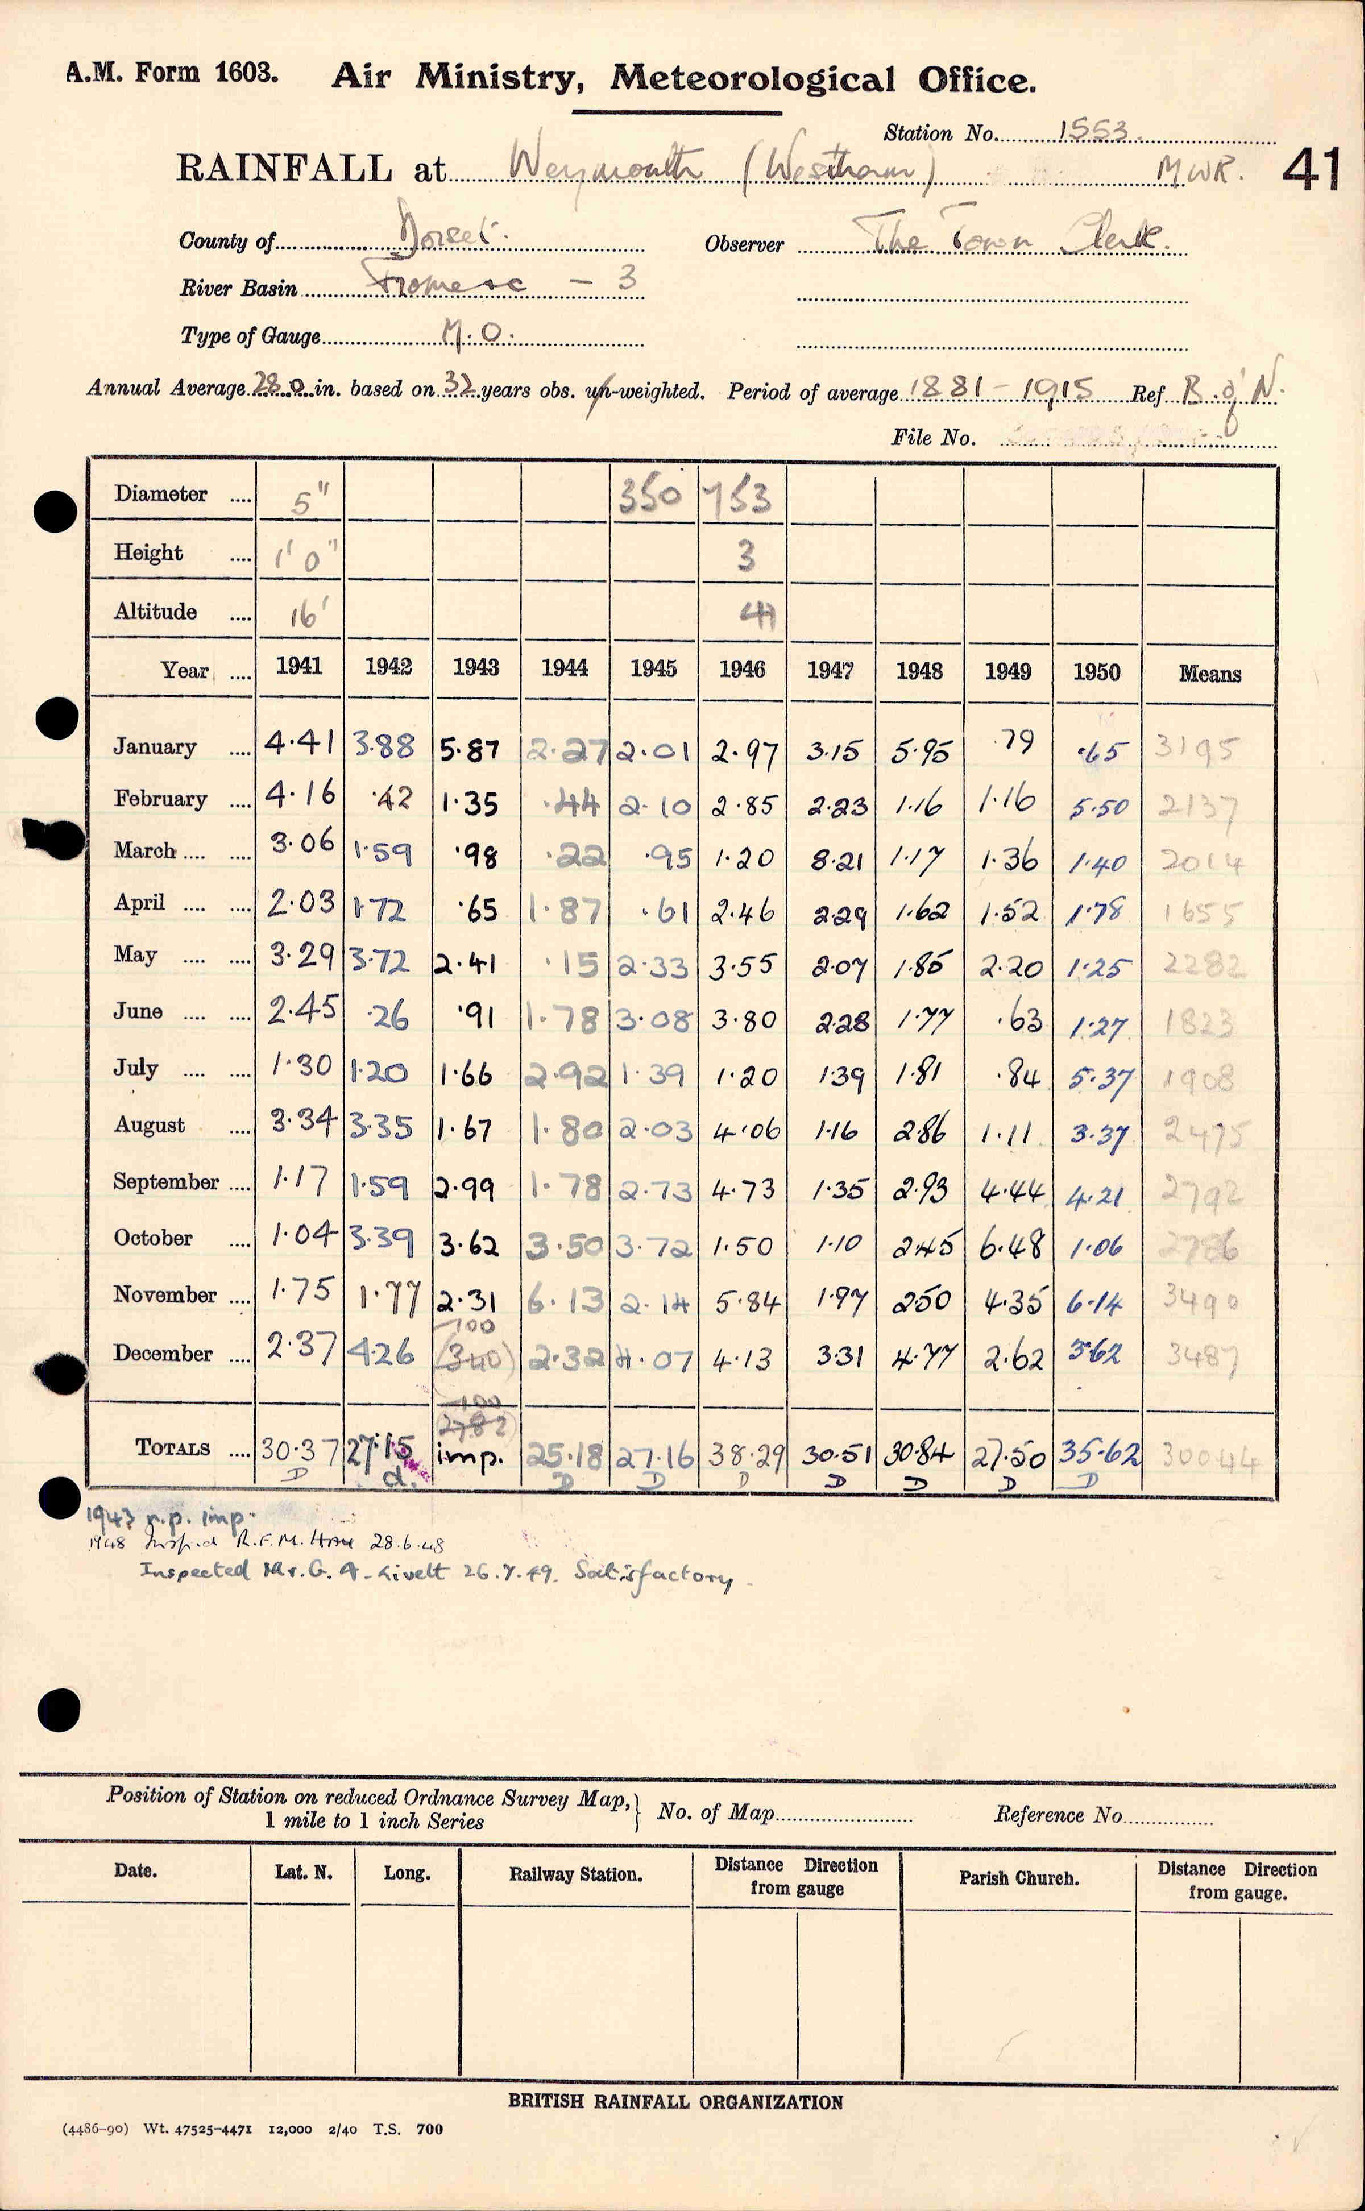 A.M. Form 1603. Air Ministry, Meteorological Office.
Station No. 1553.
RAINFALL at Weymouth (Westham) MWR. 41
County of Dorset. Observer The Town Clerk.
River Basin Frome &c - 3
Type of Gauge M.O.
Annual Average 28.0 in. based on 32 years obs. un-weighted. Period of average 1881-1915 Ref B. of N.
File No.
Diameter .... 5" 350 753
Height .... 1'0" 3
Altitude .... 16' 41
Year .... 1941 1942 1943 1944 1945 1946 1947 1948 1949 1950 Means
January .... 4.41 3.88 5.87 2.27 2.01 2.97 3.15 5.95 .79 .65 3195
February .... 4.16 .42 1.35 .44 2.10 2.85 2.23 1.16 1.16 5.50 2137
March .... .... 3.06 1.59 .98 .22 .95 1.20 8.21 1.17 1.36 1.40 2014
April .... .... 2.03 1.72 .65 1.87 .61 2.46 2.29 1.62 1.52 1.78 1655
May .... .... 3.29 3.72 2.41 .15 2.33 3.55 2.07 1.85 2.20 1.25 2282
June .... .... 2.45 .26 .91 1.78 3.08 3.80 2.28 1.77 .63 1.27 1823
July .... .... 1.30 1.20 1.66 2.92 1.39 1.20 1.39 1.81 .84 5.37 1908
August .... 3.34 3.35 1.67 1.80 2.03 4.06 1.16 2.86 1.11 3.37 2475
September .... 1.17 1.59 2.99 1.78 2.73 4.73 1.35 2.93 4.44 4.21 2792
October .... 1.04 3.39 3.62 3.50 3.72 1.50 1.10 2.45 6.48 1.06 2786
November .... 1.75 1.77 2.31 6.13 2.14 5.84 1.97 2.50 4.35 6.14 3490
100
December .... 2.37 4.26 (340) 2.32 4.07 4.13 3.31 4.77 2.62 3.62 3487
100
(2782)
TOTALS .... 30.37 27.15 imp. 25.18 27.16 38.29 30.51 30.84 27.50 35.62 30044
D d. D D D D D D D
1943 n.p. imp.
1948 Inspd R.F.M. 28.6.48
Inspected Mr. G. A. 26.7.49. Satisfactory.
Position of Station on reduced Ordnance Survey Map,} No. of Map Reference No.
1 mile to 1 inch Series
Date. Lat. N. Long. Railway Station. Distance Direction from gauge Parish Church. Distance Direction from gauge.
BRITISH RAINFALL ORGANIZATION
(4486-90) Wt. 47525-4471 12,000 2/40 T.S. 700